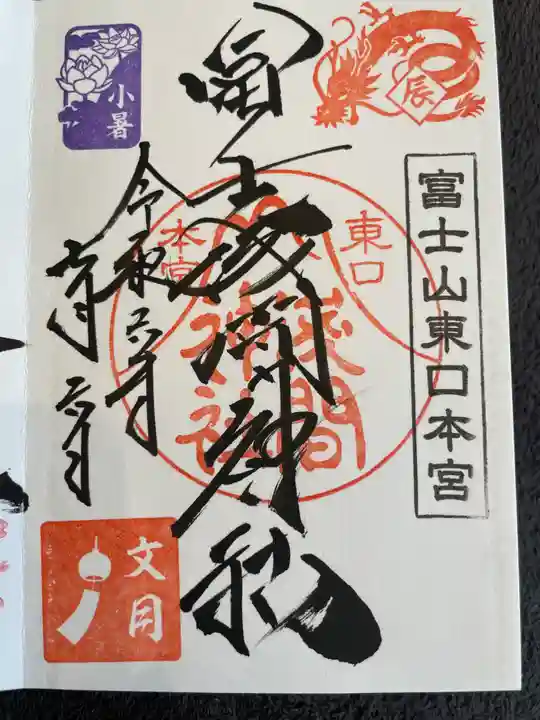 辰
富士山東口本宮
東口
本宮
浅間
神社
冨士浅間神社
小暑
令和六年
文月